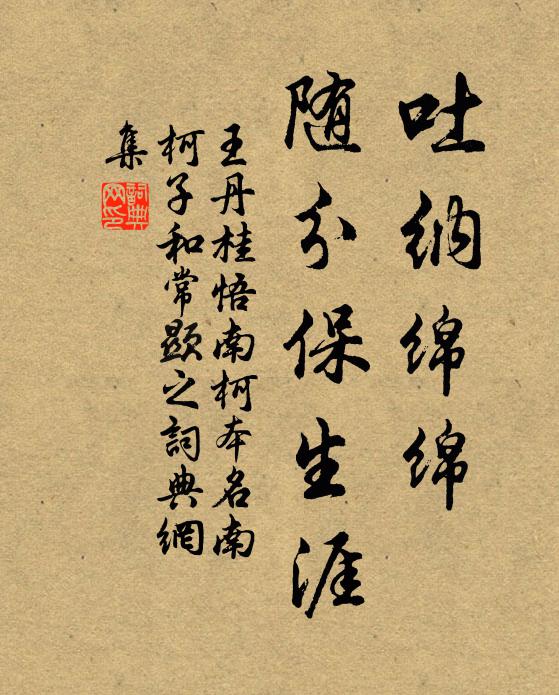 吐纳绵绵
随分保生涯
王丹桂悟南柯本名南
柯子和常顕之詞典網
集
詞典网印